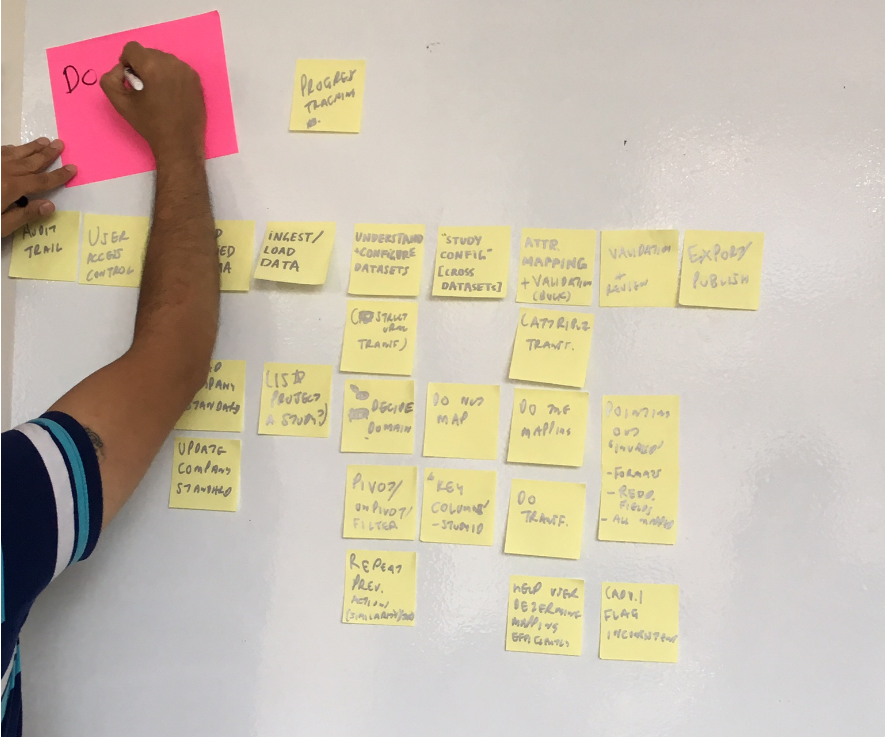 DO
PROGRESS
TRACKING
AUDIT
TRAIL
USER
ACCESS
CONTROL
INGEST/
LOAD
DATA
UNDERSTAND
+CONFIGURE
DATASETS
"STUDY
CONFIG"
[CROSS
DATASETS]
ATTR
MAPPING
+ VALIDATION
(BULK)
VALIDATION
+
REVIEW
EXPORT/
PUBLISH
STRUCT
TRANSF)
TRANSF.
STANDARD
LIST
PROJECT
DECIDE
DOMAIN
DO NOT
MAP
DO THE
MAPPING
POINTING
OUT
- FORMATS
- REQD.
FIELDS
- ALL MAPPED
UPDATE
COMPANY
STANDARD
PIVOT/
UNPIVOT/
FILTER
"KEY
COLUMNS"
- STUDYID
DO
TRANSF.
REPEAT
PREV.
ACTION
HELP USER
DETERMINE
MAPPING
(ADV.)
FLAG